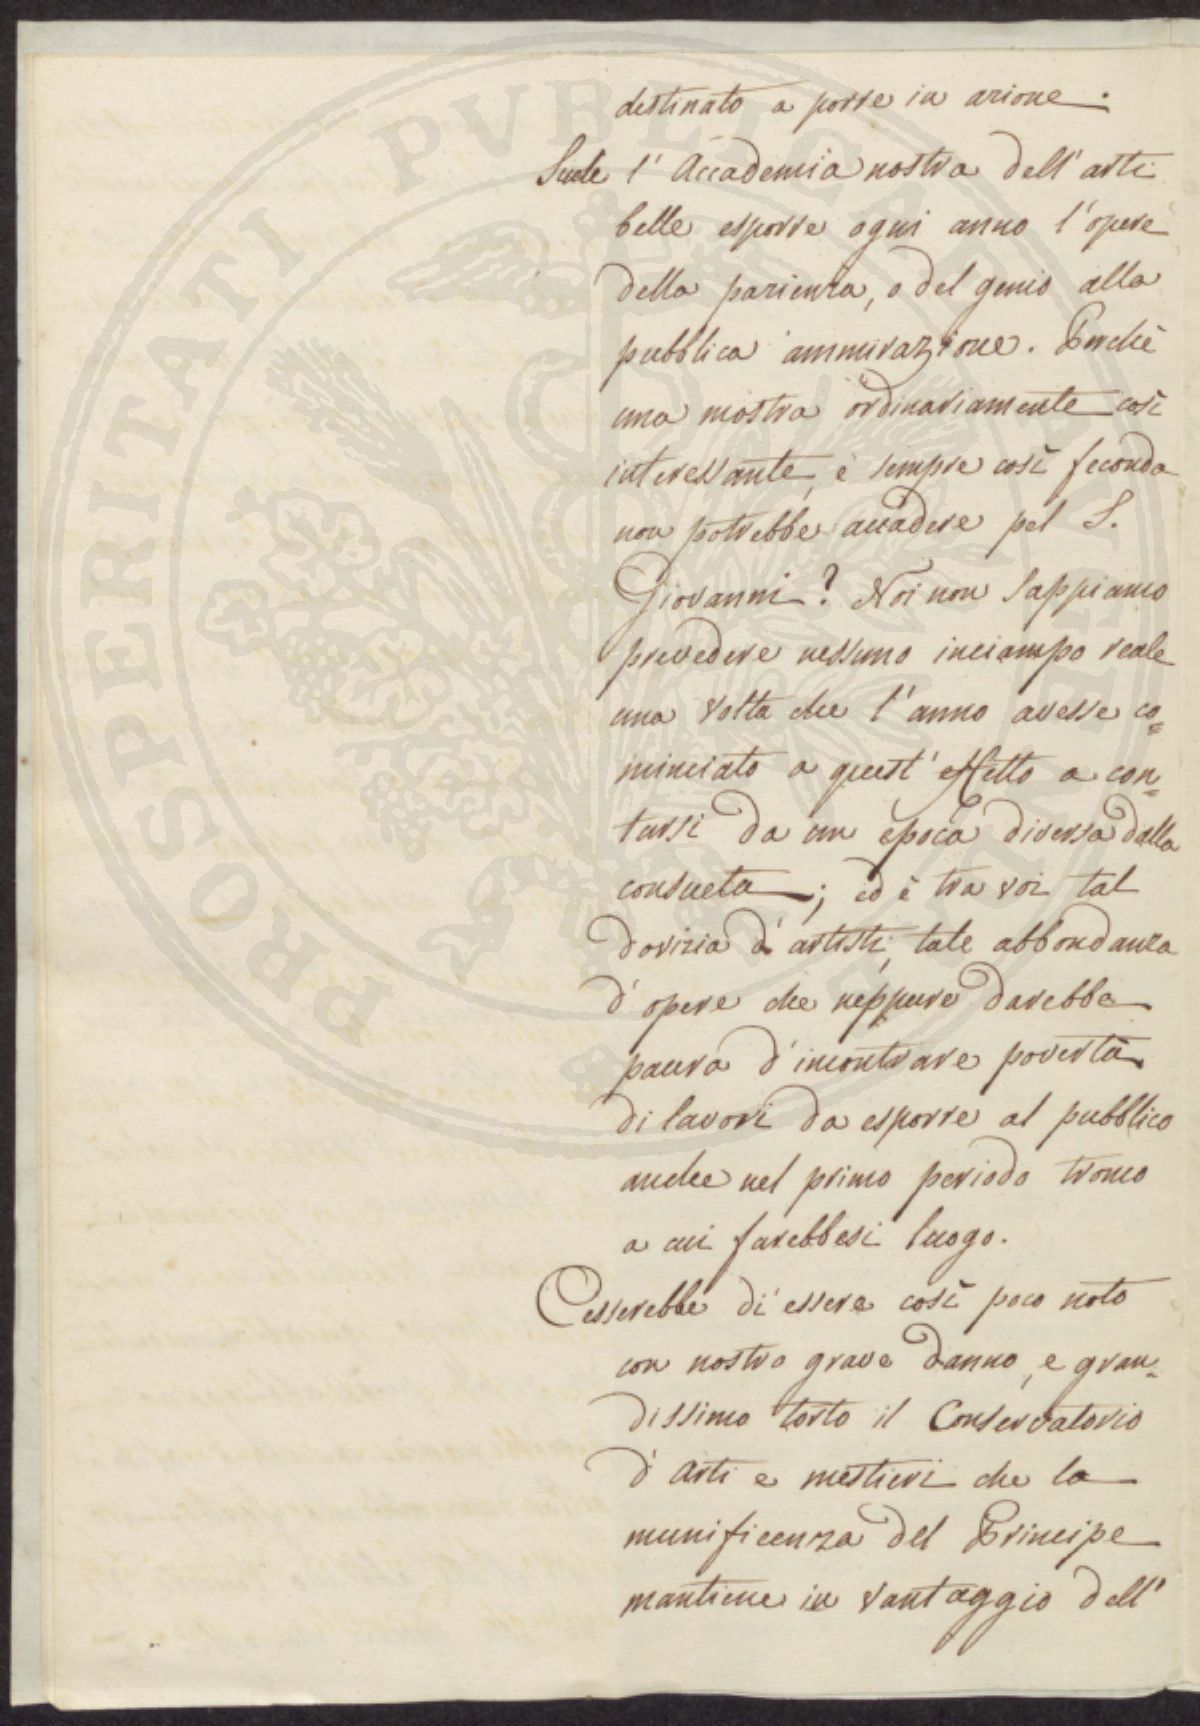 destinato a porre in azione.
Suole l'Accademia nostra dell'arti
belle esporre ogni anno l'opere
della pazienza, o del genio alla
pubblica ammirazione. Perchè
una mostra ordinariamente così
interessante, e sempre così feconda
non potrebbe accadere pel S.
Giovanni? Noi non sappiamo
prevedere nessuno inciampo reale
una volta che l'anno avesse co=
minciato a quest'effetto a con=
tarsi da un epoca diversa dalla
consueta; ed è tra voi tal
dovizia d'artisti, tale abbondanza
d'opere che neppure darebbe
paura d'incontrare povertà
di lavori da esporre al pubblico
anche nel primo periodo tronco
a cui farebbesi luogo.
Cesserebbe di essere così poco noto
con nostro grave danno, e gran=
dissimo torto il Conservatorio
d'Arti e mestieri che la
munificenza del Principe
mantiene in vantaggio dell'
PROSPERITATI PVBLICAE